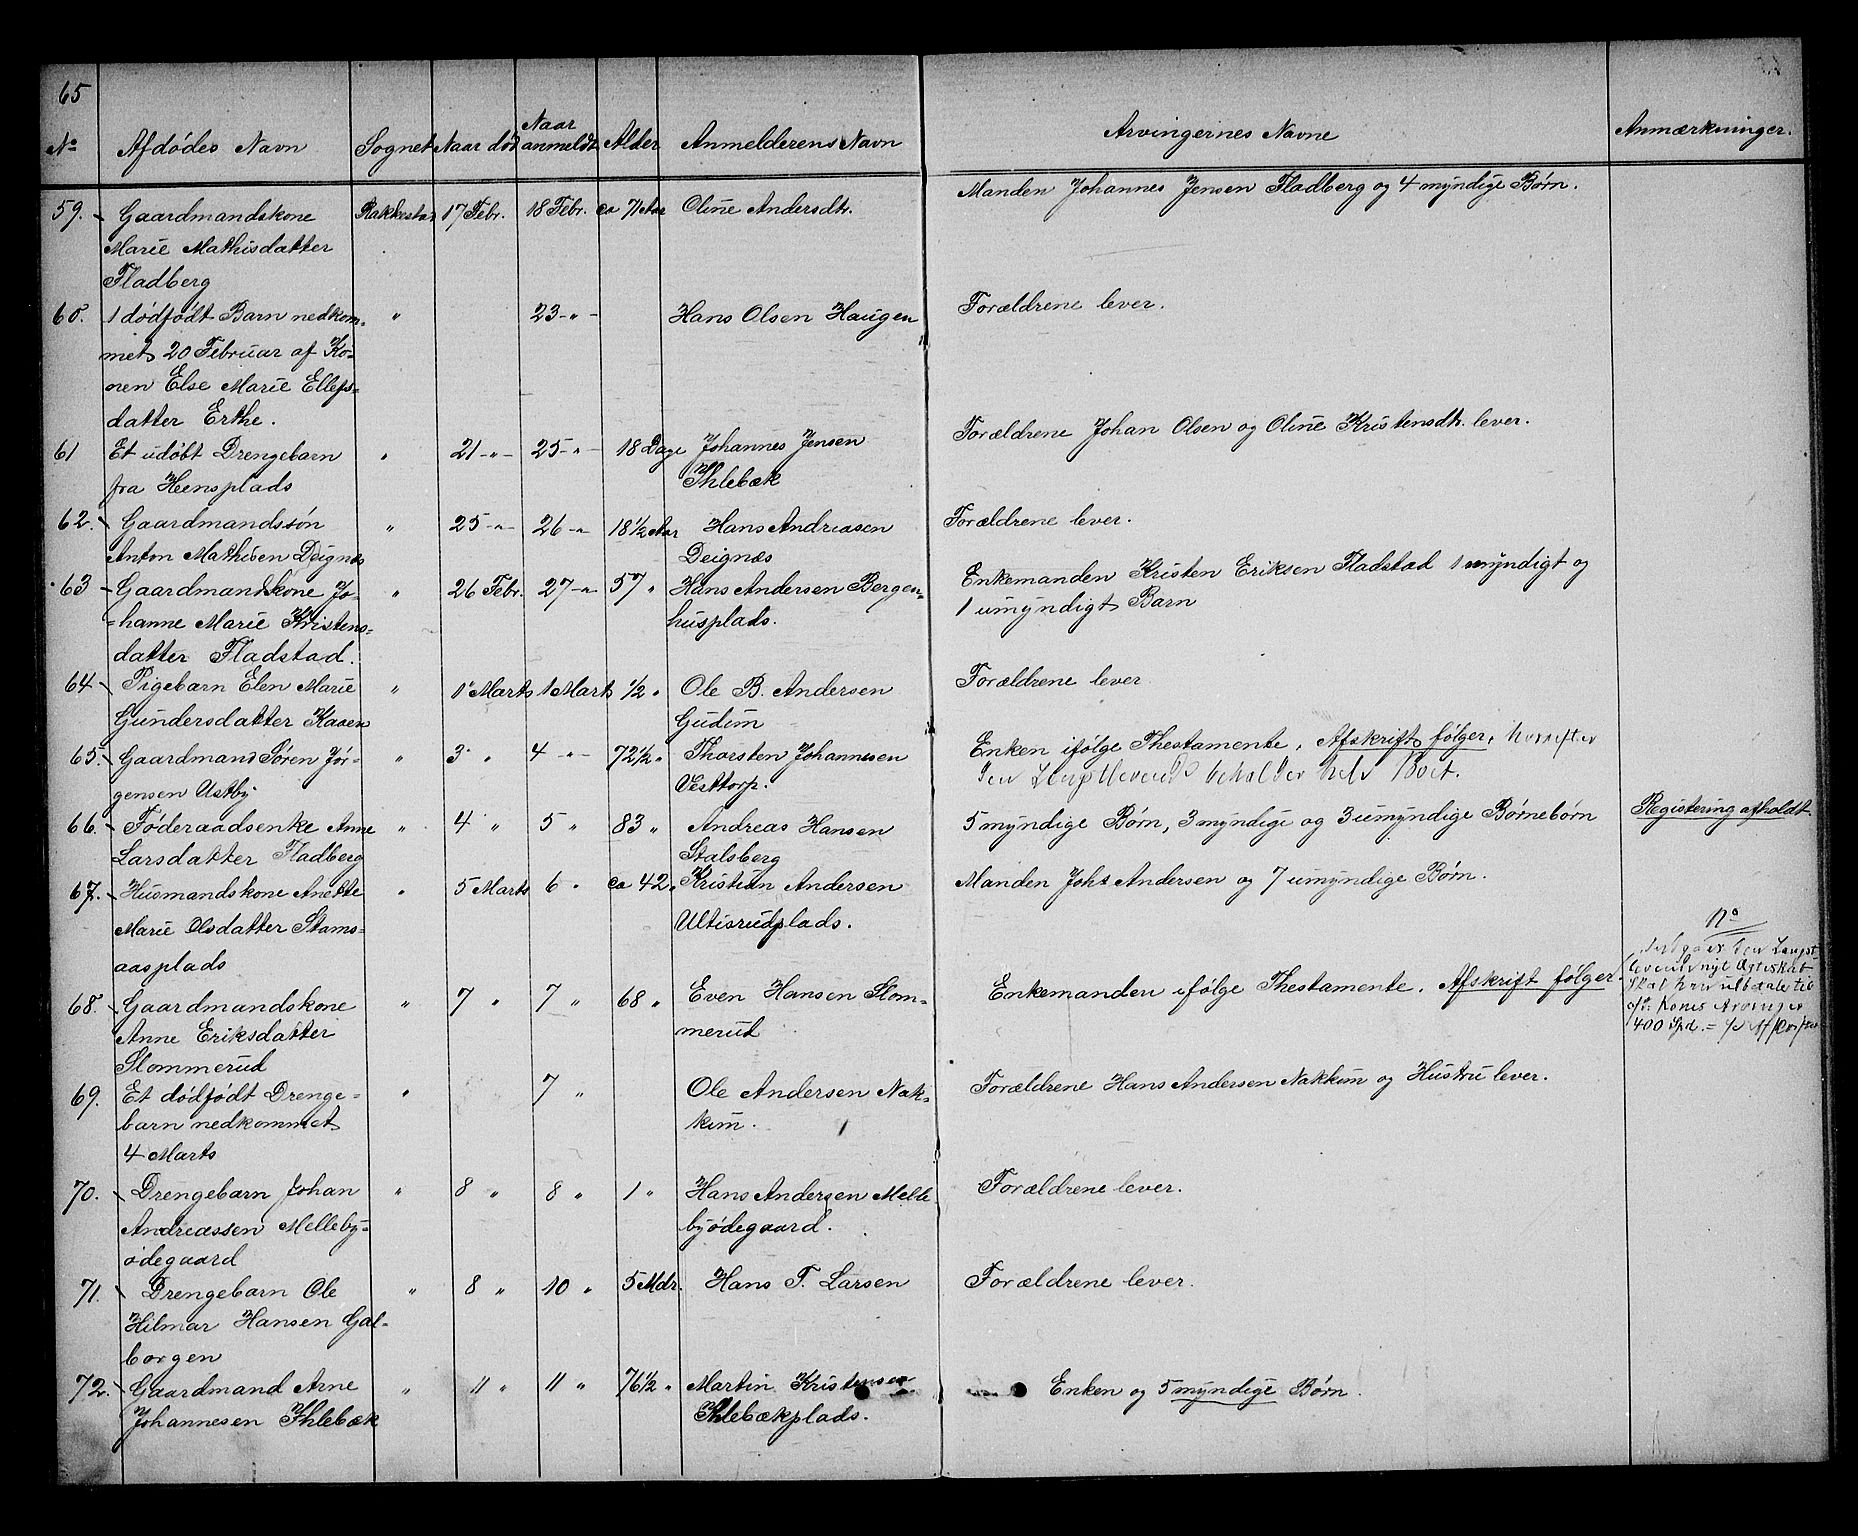 65
No Afdødes Navn Sognet Naar død Naar anmeldt Alder Anmelderens Navn Arvingernes Navne Anmærkninger.
59. Gaardmandskone Rakkestad 17 Febr. 18 Febr. ca 71 Aar Oline Andersdtr. Manden Johannes Jensen Fladberg og 4 myndige Børn.
Marie Mathisdatter
Fladberg
60. 1 dødfødt Barn nedkom- " 23 - " - Hans Olsen Haugen Forældrene lever.
met 20 Februar af Ko-
nen Else Marie Ellefs-
datter Erthe.
61 Et udøbt Drengebarn " 21 - " - 25 - " - 18 Dage Johannes Jensen Forældrene Johan Olsen og Oline Kristensdtr. lever.
fra Heensplads Ihlebæk
62. Gaardmandssøn " 25 - " - 26 - " 18 1/2 Aar Hans Andreasen Forældrene lever.
Anton Mathisen Deignæs Deignæs
63 Gaardmandskone Jo- " 26 Febr. 27 - " 57 " Hans Andersen Bergen- Enkemanden Kristen Eriksen Fladstad 1 myndigt og
hanne Marie Kristens- husplads. 1 umyndigt Barn
datter Fladstad.
64 Pigebarn Elen Marie " 1 Marts 1 Marts 1/2 " Ole B. Andersen Forældrene lever
Gundersdatter Kaaen Gudim
65. Gaardmand Søren Jør- " 3 " 4 - " - 72 1/2 " Thorsten Johannesen Enken ifølge Thestamente, Afskrift følger, hvorefter
gensen Ustby Vesttorp. den Længstlevende beholder hele Boet.
66. Føderaadsenke Anne " 4 " 5 " 83 " Andreas Hansen 5 myndige Børn, 3 myndige og 3 umyndige Børnebørn Registering afholdt.
Larsdatter Fladberg Stalsberg
67. Husmandskone Anette " 5 Marts 6 " ca 42 " Kristian Andersen Manden Johs Andersen og 7 umyndige Børn.
Marie Olsdatter Stams- Ultisrudplads.
aasplads
68. Gaardmandskone " 7 " 7 " 68 " Even Hansen Slom- Enkemanden ifølge Thestamente. Afskrift følger.
Anne Eriksdatter merud
Slommerud
No
den Længst
levende nyt Ægteskab
skal han udbetale til
Kones Arvinger
400 Spd.
69. Et dødfødt Drenge- " 7 " Ole Andersen Nak- Forældrene Hans Andersen Nakkim og Hustru lever.
barn nedkommet kim.
4 Marts
70. Drengebarn Johan " 8 " 8 " 1 " Hans Andersen Melle- Forældrene lever.
Andreassen Melleby- byødegaard.
ødegaard
71. Drengebarn Ole " 8 " 10 " 5 Mdr. Hans T. Larsen Forældrene lever.
Hilmar Hansen Gal-
borgen
72. Gaardmand Arne " 11 " 11 " 76 1/2 " Martin Kristensen Enken og 5 myndige Børn.
Johannesen Ihlebæk Ihlebækplads.